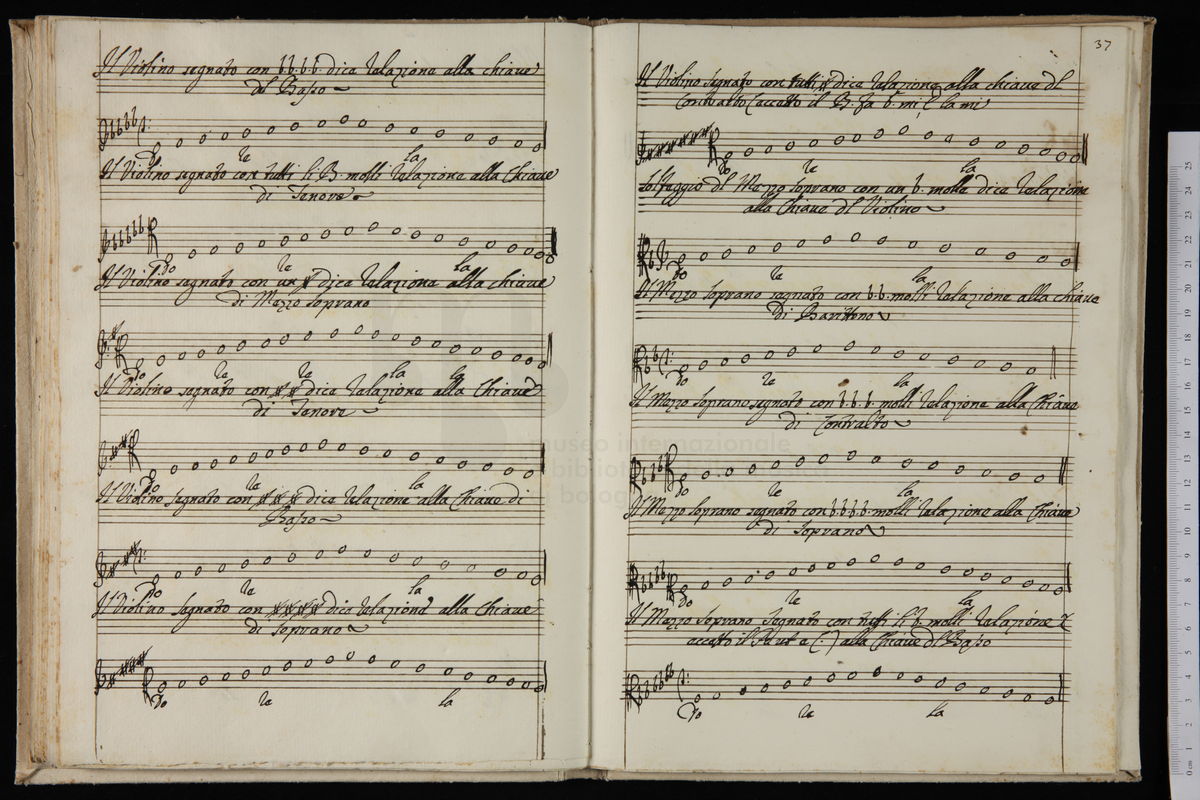 Il Violino segnato con b.b.b.b dice Relazione alla chiave
del Basso
Do re la
Il Violino segnato con tutti li B. molli Relazione alla Chiave
di Tenore
Do re la
Il Violino segnato con un # dice Relazione alla chiave
di Mezzo Soprano
Do re re la la
Il Violino segnato con ## dice Relazione alla Chiave
di Tenore
Do re la
Il Violino segnato con ### dice Relazione alla Chiave di
Basso
Do re la
Il Violino segnato con #### dice Relazione alla Chiave
di Soprano
Do re la
37
Il Violino segnato con tutti # dice Relazione alla chiave del
Contralto eccetto il B. fa b. mi, E la mi
Do re la
Solfeggio del Mezzo Soprano con un b. molle dice Relazione
alla Chiave del Violino
Do re la
Il Mezzo Soprano segnato con b.b. molli Relazione alla chiave
di Barittono
Do re la
Il Mezzo Soprano segnato con b.b.b. molli Relazione alla Chiave
di Contralto
Do re la
Il Mezzo Soprano segnato con b.b.b.b. molli Relazione alla Chiave
di Soprano
Do re la
Il Mezzo Soprano Segnato con tutti li b. molli Relazione
eccetto il F fa ut e alla Chiave del Basso
Do re la
museo internazionale
e biblioteca della musica
di bologna
0 cm 1 2 3 4 5 6 7 8 9 10 11 12 13 14 15 16 17 18 19 20 21 22 23 24 25